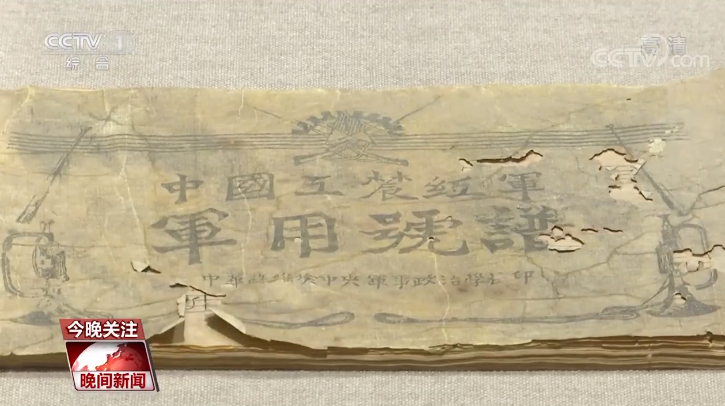 CCTV 1
综合
高清
CCTV.com
中國工农紅軍
軍用號譜
中央軍事政治學校 印
今晚关注
晚间新闻